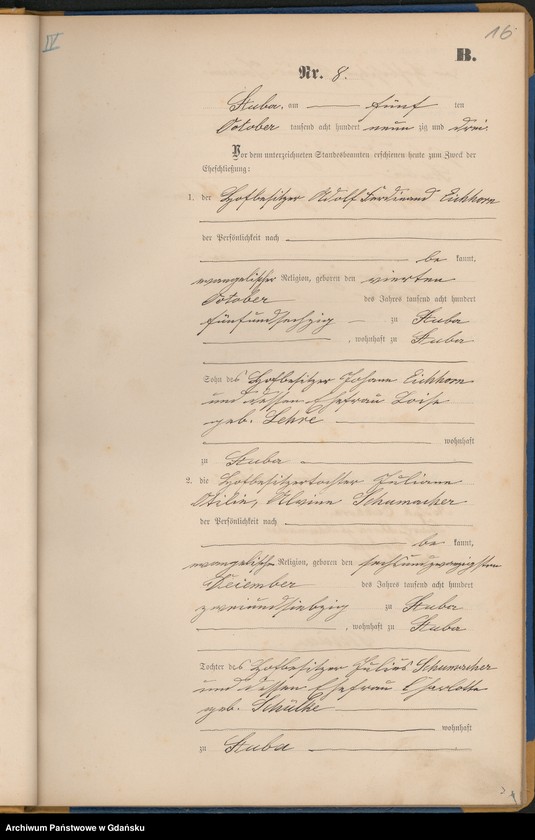 IV
16
B.
Nr. 8.
Stuba, am fünf ten
October tausend acht hundert neun zig und drei.
Vor dem unterzeichneten Standesbeamten erschienen heute zum Zweck der
Eheschließung:
1. der Hofbesitzer Adolf Ferdinand Eichhorn
der Persönlichkeit nach
be kannt,
evangelischer Religion, geboren den vierten
October des Jahres tausend acht hundert
fünfundsechzig zu Stuba
, wohnhaft zu Stuba
Sohn des Hofbesitzer Johann Eichhorn
und dessen Ehefrau Loise
geb. Lehre
wohnhaft
zu Stuba
2. die Hofbesitzertochter Juliane
Otilie, Alvine Schumacher
der Persönlichkeit nach
be kannt,
evangelische Religion, geboren den sechsundzwanzigsten
Dezember des Jahres tausend acht hundert
zweiundsiebzig zu Stuba
, wohnhaft zu Stuba
Tochter des Hofbesitzer Julius Schumacher
und dessen Ehefrau Charlotte
geb. Schülke
wohnhaft
zu Stuba
Archiwum Państwowe w Gdańsku